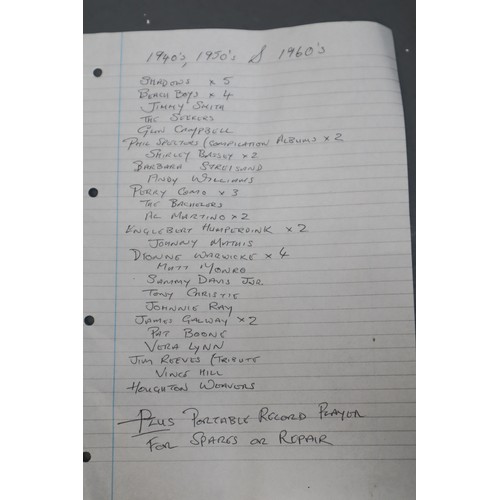 1940's, 1950's & 1960's
SHADOWS × 5
BEACH BOYS × 4
JIMMY SMITH
THE SEEKERS
GLEN CAMPBELL
PHIL SPECTORS (COMPILATION ALBUMS × 2
SHIRLEY BASSEY × 2
BARBARA STREISAND
ANDY WILLIAMS
PERRY COMO × 3
THE BACHELORS
AL MARTINO × 2
ENGLEBURT HUMPERDINK × 2
JOHNNY MATHIS
DIONNE WARWICKE × 4
MATT MONRO
SAMMY DAVIS JNR.
TONY CHRISTIE
JOHNNIE RAY
JAMES GALWAY × 2
PAT BOONE
VERA LYNN
JIM REEVES (TRIBUTE
VINCE HILL
HOUGHTON WEAVERS
PLUS PORTABLE RECORD PLAYER
FOR SPARES OR REPAIR